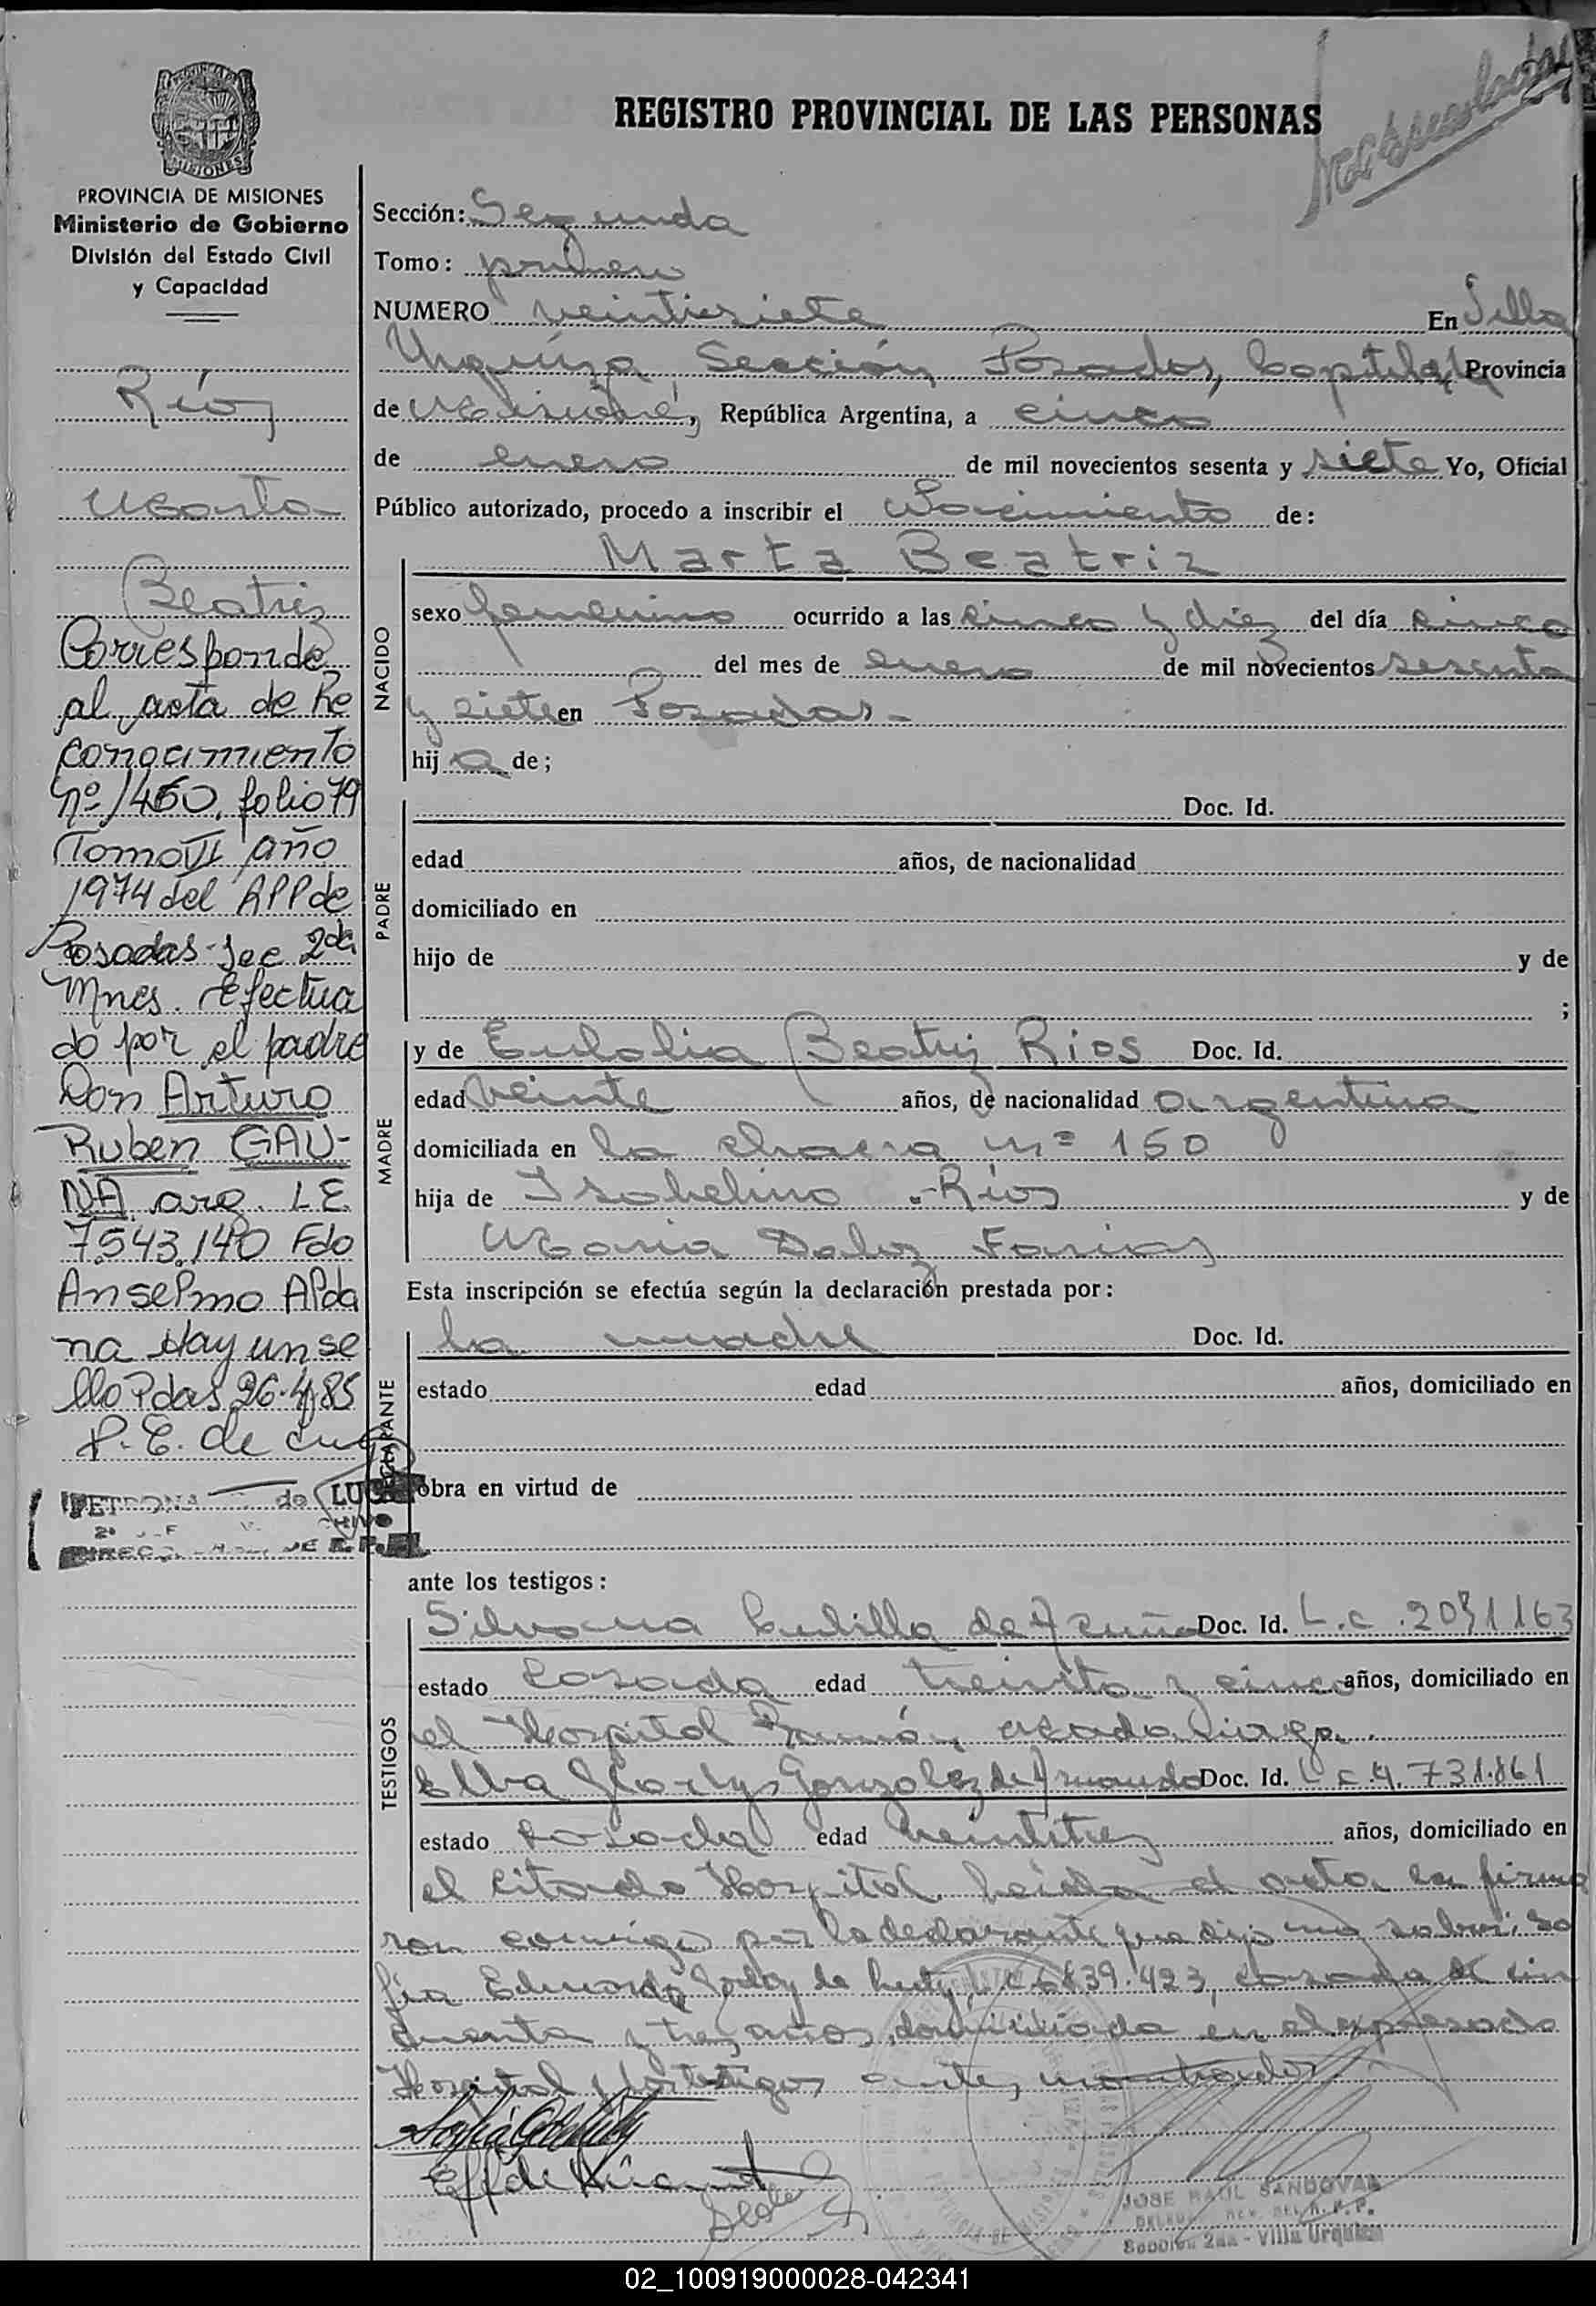 REGISTRO PROVINCIAL DE LAS PERSONAS
PROVINCIA DE MISIONES
Ministerio de Gobierno
División del Estado Civil
y Capacidad
Ríos
Marta
Beatriz
Corresponde
al acta de Re
conocimiento
nº 1460, folio 79
Tomo VI año
1974 del RPP de
Posadas-Sec 2da
Mnes. Efectua
do por el padre
Don Arturo
Ruben GAU-
NA arg. LE.
7.543.140 Fdo
Anselmo Alda
na Hay un se
llo Pdas 26.4.85
Sección: Segunda
Tomo: primero
NUMERO veintisiete En Villa
Urquiza Sección, Posadas, Capital de la Provincia
de Misiones, República Argentina, a cinco
de enero de mil novecientos sesenta y siete Yo, Oficial
Público autorizado, procedo a inscribir el Nacimiento de:
Marta Beatriz
NACIDO
sexo femenino ocurrido a las cinco y diez del día cinco
del mes de enero de mil novecientos sesenta
y siete en Posadas-
hija de;
PADRE
Doc. Id.
edad años, de nacionalidad
domiciliado en
hijo de y de
;
MADRE
y de Eulalia Beatriz Rios Doc. Id.
edad veinte años, de nacionalidad argentina
domiciliada en la chacra nº 150
hija de Isabelino Ríos y de
Maria Farías
Esta inscripción se efectúa según la declaración prestada por:
DECLARANTE
la madre Doc. Id.
estado edad años, domiciliado en
obra en virtud de
ante los testigos:
TESTIGOS
Silvana de Acuña Doc. Id. L.C. 2051163
estado casada edad treinta y cinco años, domiciliado en
el Hospital Ramón
Elba Gladys Gonzalez de Doc. Id. L.C. 4.731.861
estado casada edad veintitres años, domiciliado en
el citado Hospital. Leída el acta la firma
ron conmigo por la declarante que dijo no saber: So
fía Godoy de 6839.423, casada de cin
cuenta y tres años, domiciliada en el expresado
Hospital y los testigos antes
JOSE RAUL SANDOVAL
Sección 2da - Villa Urquiza
02_100919000028-042341